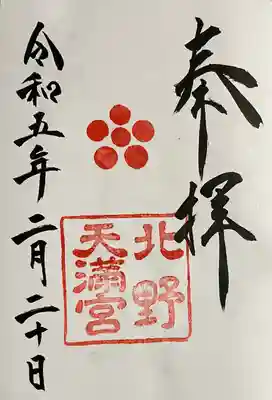 奉拝
北野
天満宮
令和五年二月二十日